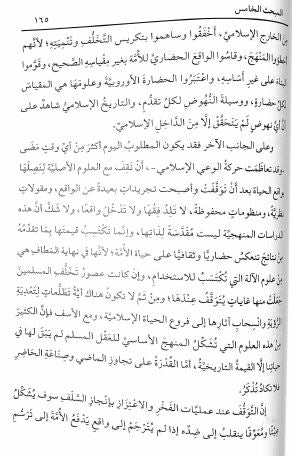 المبحث الخامس ١٦٥
مِن الخارج الإسلاميِّ، أَخْفَقُوا وساهموا بتكريس التَّخَلُّف وتَنْمِيَتِهِ؛ لأنَّهم
أخطؤوا المَنْهَجَ، وقاسُوا الواقعَ الحضاريَّ للأُمَّة بغير مِقياسِهِ الصحيح، وقَوَّموا
البناء على غيرِ أَسَاسِهِ، واعْتَبَرُوا الحضارةَ الأوروبيَّةَ وعلومَها هي المقياسَ
لكلِّ حضارةٍ، ووسيلةَ النُّهُوضِ لكلِّ تقدُّمٍ، والتاريخُ الإسلاميُّ شاهدٌ على
أنَّ أيَّ نهوضٍ لَمْ يَتَحَقَّقْ إلَّا مِنَ الدَّاخِلِ الإسلاميِّ.
وعلى الجانب الآخر فقد يكون المطلوبُ اليومَ أكثرَ مِنْ أيِّ وقتٍ مَضَى
-وقد تعاظمَت حركةُ الوعي الإسلامي-، أنْ نَقِفَ مع العلوم الأصليَّةِ لِنَصِلَهَا
بواقع الحياة بعد أنْ تَوَقَّفَتْ وأصبحت تجريداتٍ بعيدةً عن الواقع، ومقولاتٍ
نظريَّةً، ومنظوماتٍ محفوظةً، لا تَلِدُ فِقْهًا ولا تَدْخُلُ واقعًا، ولا شكَّ أنَّ هذه
الدراسات المنهجيَّة ليست مُقَدَّسَةً لِذَاتِها، وإنَّما تَكْتَسِبُ قيمتَها بِما تُقَدِّمُهُ
مِنْ نتائجَ تنعكسُ حضاريًّا وثقافيًّا على حياة الأُمَّة؛ لأنَّها في نهاية المَطافِ هي
مِنْ علومِ الآلةِ التي تُكْتَسَبُ للاستخدام، وإنْ كانت عصورُ تَخَلُّفِ المسلمينَ
جَعَلَتْ منها غاياتٍ يُتَوَقَّفُ عِنْدَهَا، ومِنْ ثَمَّ لا تكونُ هناك أيَّةُ تَطَلُّعَاتٍ لِتَعْدِيَةِ
الرُّؤيةِ وانْسِحابِ آثارِها إلى فروعِ الحياة الإسلاميَّةِ، ومع الأسفِ فإنَّ الكثيرَ
مِنْ هذه العلوم التي تُشَكِّلُ المنهجَ الأساسيَّ للعَقْلِ المسلم لم يَبْقَ لها في
حياتِنا إلَّا القيمةُ التاريخيَّةُ، أمَّا القُدْرَةُ على تجاوُزِ الماضي وصِناعَةِ الحاضِرِ
فلا تَكادُ تُذْكَرُ.
إنَّ التَّوَقُّفَ عند عمليَّاتِ الفَخْرِ والاعتِزازِ بإنجازِ السَّلَفِ سوف يُشَكِّلُ
عِبْئًا ومُعَوِّقًا ينقلبُ إلى ضِدِّهِ إذا لم يُتَرْجَمْ إلى واقعٍ يَدْفَعُ الأُمَّةَ إلى تَرَسُّمِ